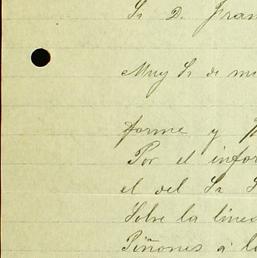 Sr D. Fran
Muy Sr de mi
forme y
Por el infor
el del Sr
Sobre la linea
Piñones á la